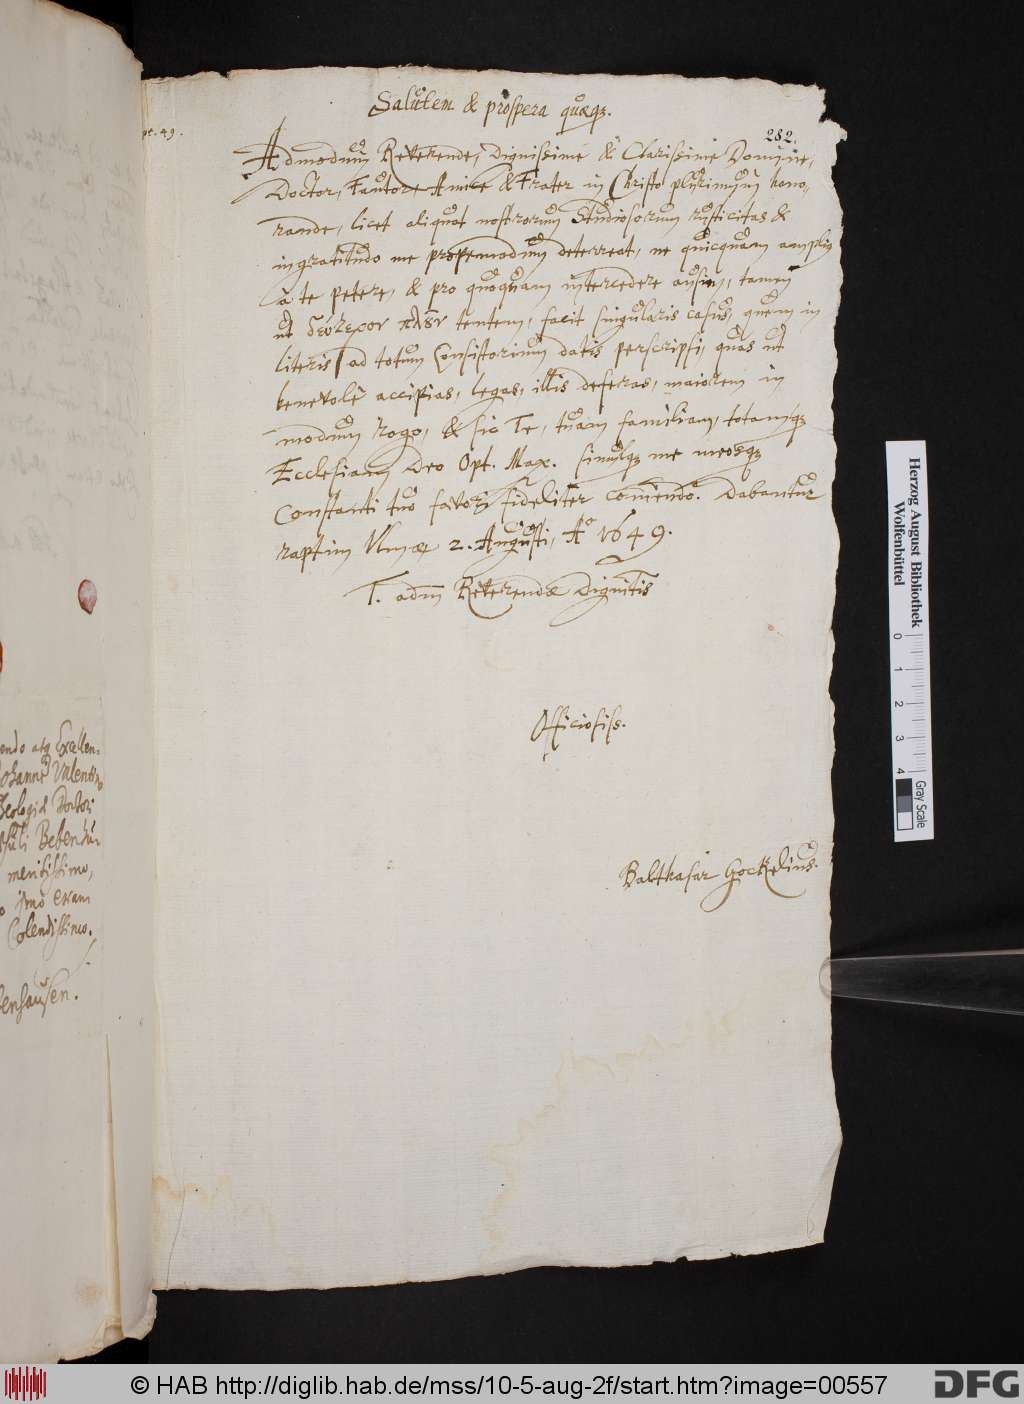 Salutem & prospera quæq3.
pt. 49.
282.
Admodum Reverende, Dignissime & Clarissime Domine,
Doctor, Fautor Amice & Frater in Christo plurimum hono,
rande, licet aliquot nostrorum Studiosorum rusticitas &
ingratitudo me propemodum deterreat, ne quicquam amplig
à te petere, & pro quoquam intercedere ausim, tamen
ut δεύτερον πλȣν tentem, facit singularis casus, quem in
literis ad totum Consistorium datis perscripsi, quas ut
benevolè accipias, legas, illis deferas, maiorem in
modum rogo, & sic Te, tuam familiam, totamq3
Ecclesiam Deo Opt. Max. simulq3 me meosq3
constanti tuo favori fideliter comendo. Dabantur
raptim Ulmæ 2. Augusti, Aº 1649.
T. adm Reverendæ Dignitis
Officiosiss.
Balthasar Gockelius.
endo atq Excellen-
ohanni Valentino
Theologiæ Doctori
Bebenhu-
meritissimo,
imo etiam
Colendissimo.
enhausen.
Herzog August Bibliothek
Wolfenbüttel
0 1 2 3 4
Gray Scale
© HAB http://diglib.hab.de/mss/10-5-aug-2f/start.htm?image=00557
DFG